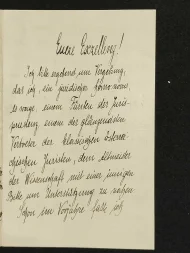 Euere Exzellenz!
Ich bitte ergebend um Vergebung,
das ich, ein juridischer homo novus,
es wage, einem Fürsten der Juris-
prudenz einem der glänzendsten
Vertreter der klassischen österrei-
chischen Juristen, dem Altmeister
der Wissenschaft mit einer innigen
Bitte um Unterstützung zu nahen.
Schon im Vorjahre hatte ich